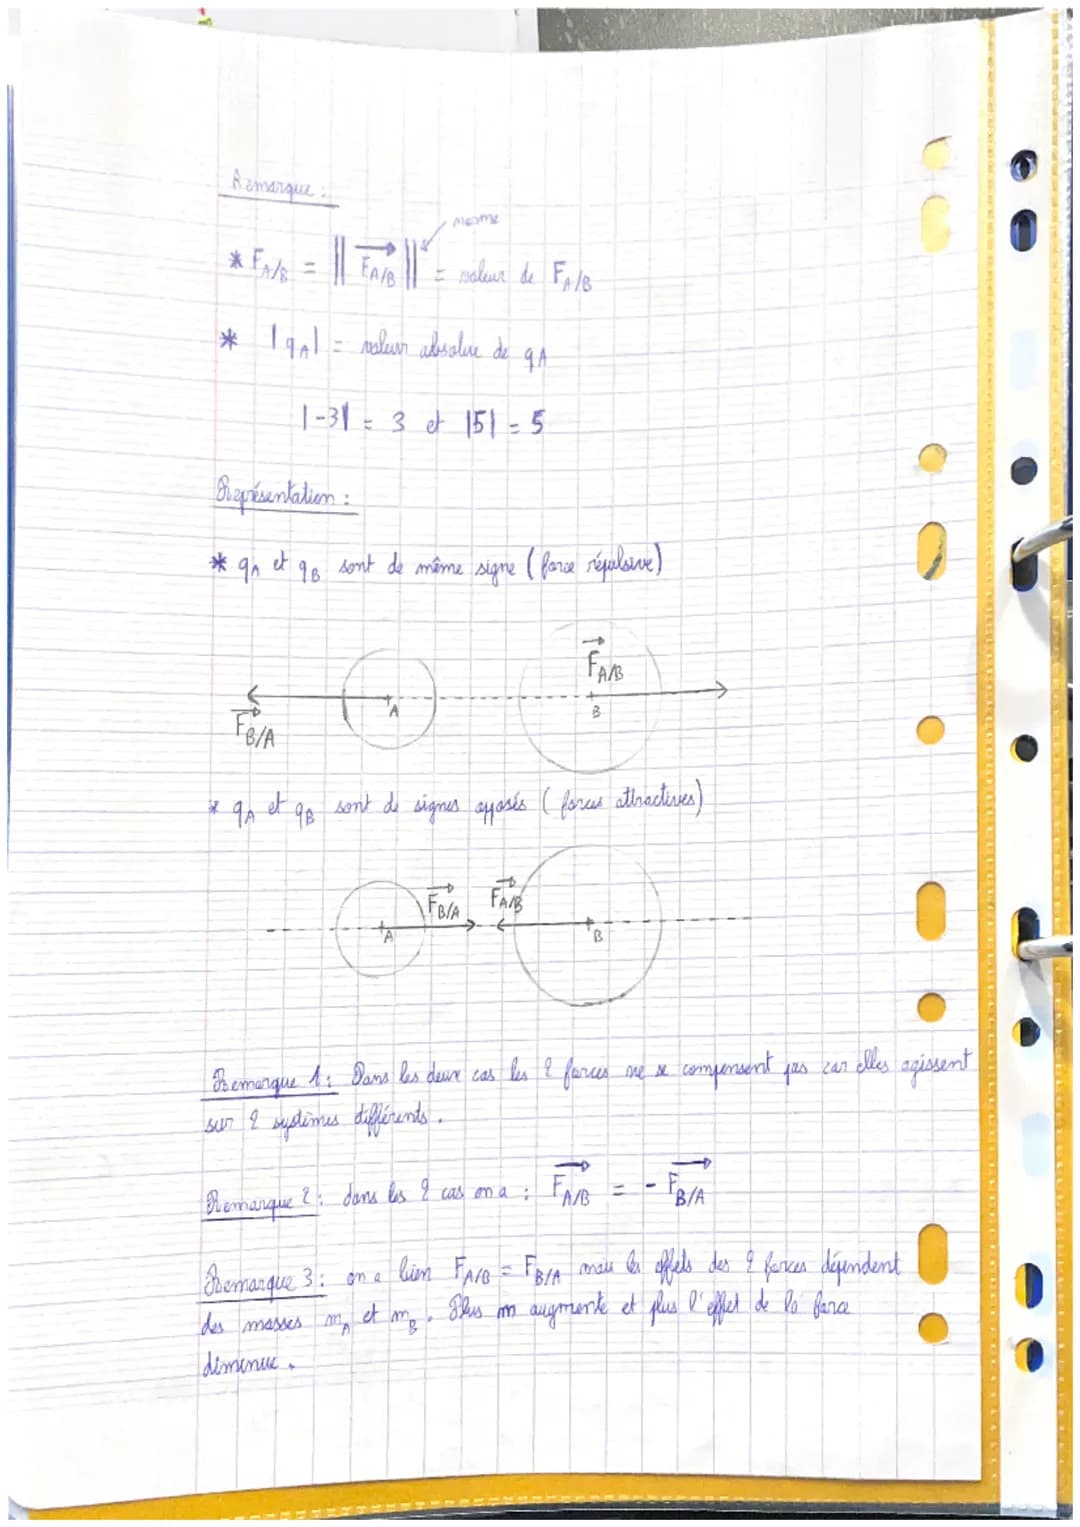 Remarque :
norme
* F_A/B = || F⃗_A/B || = valeur de F_A/B
* |q_A| = valeur absolue de q_A
|-3| = 3 et |5| = 5
Représentation :
* q_A et q_B sont de même signe ( force répulsive)
F⃗_A/B
A
B
F⃗_B/A
* q_A et q_B sont de signes opposés ( forces attractives)
F⃗_B/A F⃗_A/B
A
B
Remarque 1 : Dans les deux cas les 2 forces ne se compensent pas car elles agissent
sur 2 systèmes différents .
Remarque 2 : dans les 2 cas on a : F⃗_A/B = - F⃗_B/A
Remarque 3 : on a bien F_A/B = F_B/A mais les effets des 2 forces dépendent
des masses m_A et m_B . Plus m augmente et plus l'effet de la force
diminue .